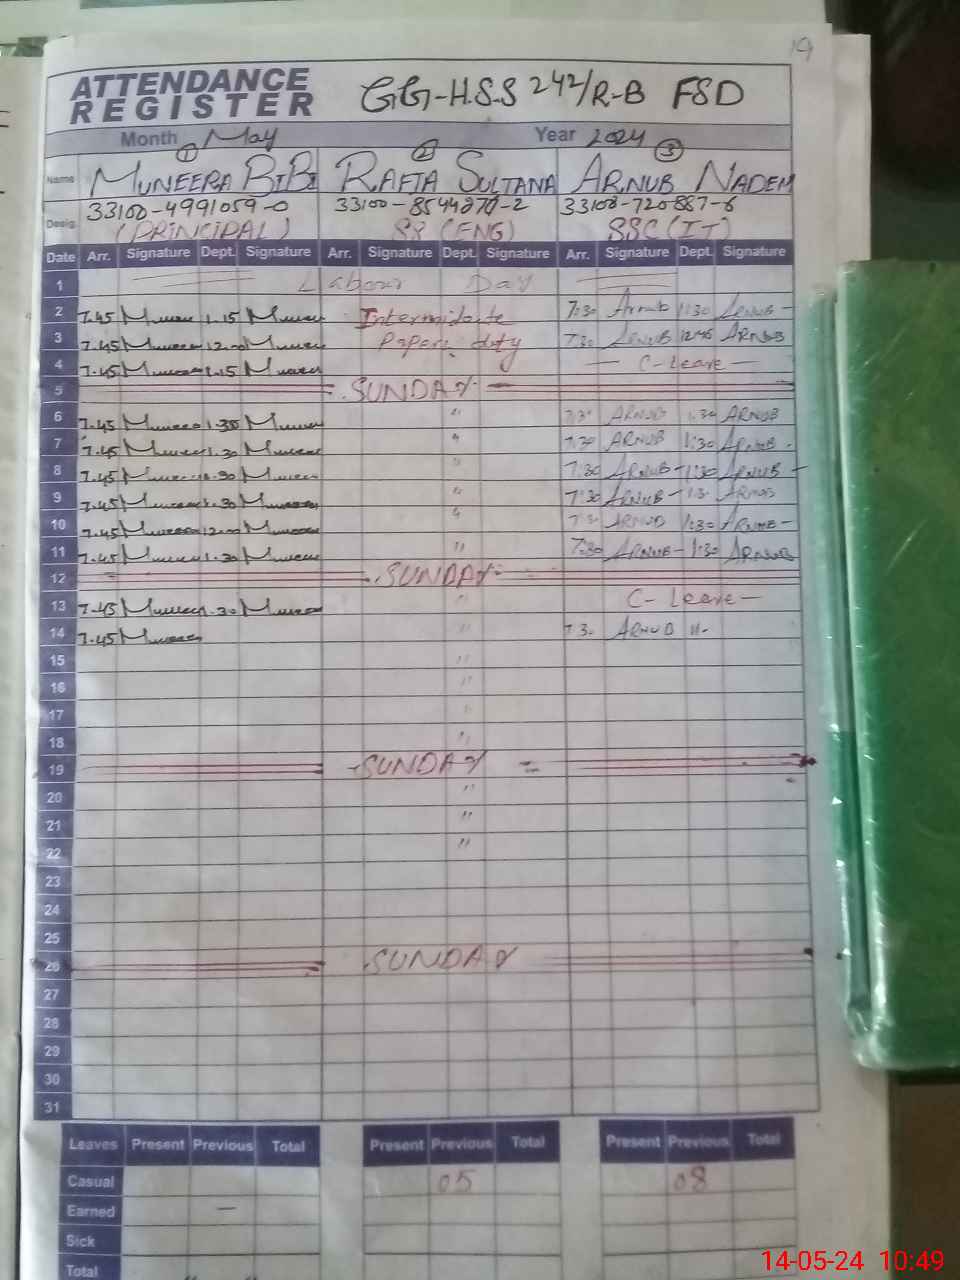 19
ATTENDANCE
REGISTER
GG-H.S.S 242/R-B FSD
Month May Year 2024
① ② ③
Name MUNEERA BIBI RAFIA SULTANA ARNUB NADEM
33100-4991059-0 33100-8544270-2 33108-720887-6
Desig. (PRINCIPAL) SS (ENG) SSC (IT)
Date Arr. Signature Dept. Signature Arr. Signature Dept. Signature Arr. Signature Dept. Signature
1 Labour Day
2 7.45 1.15 Intermidate 7:30 Arnub 1:30 ARNUB -
3 7.45 12.00 Papers duty 7:30 ARNUB ARNUB
4 7.45 1.15 - C-Leave -
5 SUNDAY
6 7.45 1.30 " 7:3 ARNUB 1.30 ARNUB
7 7.45 1.30 " 7.30 ARNUB 1:30 ARNUB -
8 7.45 1.30 " 7:30 ARNUB - 1:30 ARNUB -
9 7.45 1.30 " 7:30 ARNUB - 1:3 ARNUB
10 7.45 12.00 " 7:3 ARNUB 1:30 ARNUB -
11 7.45 1.30 " 7:30 ARNUB - 1:30 ARNUB
12 SUNDAY
13 7.45 1.30 " C- Leave -
14 7.45 " 7.30 ARNUB 11-
15 "
16 "
17 "
18 "
19 SUNDAY
20 "
21 "
22 "
23
24
25
26 SUNDAY
27
28
29
30
31
Leaves Present Previous Total Present Previous Total Present Previous Total
Casual 05 08
Earned —
Sick
Total
14-05-24 10:49